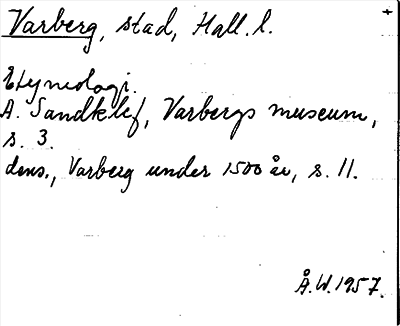 Varberg, stad, Hall. l.
Etymologi.
A. Sandklef, Varbergs museum,
s. 3.
dens., Varberg under 1500 år, s. 11.
Å.W.1957.